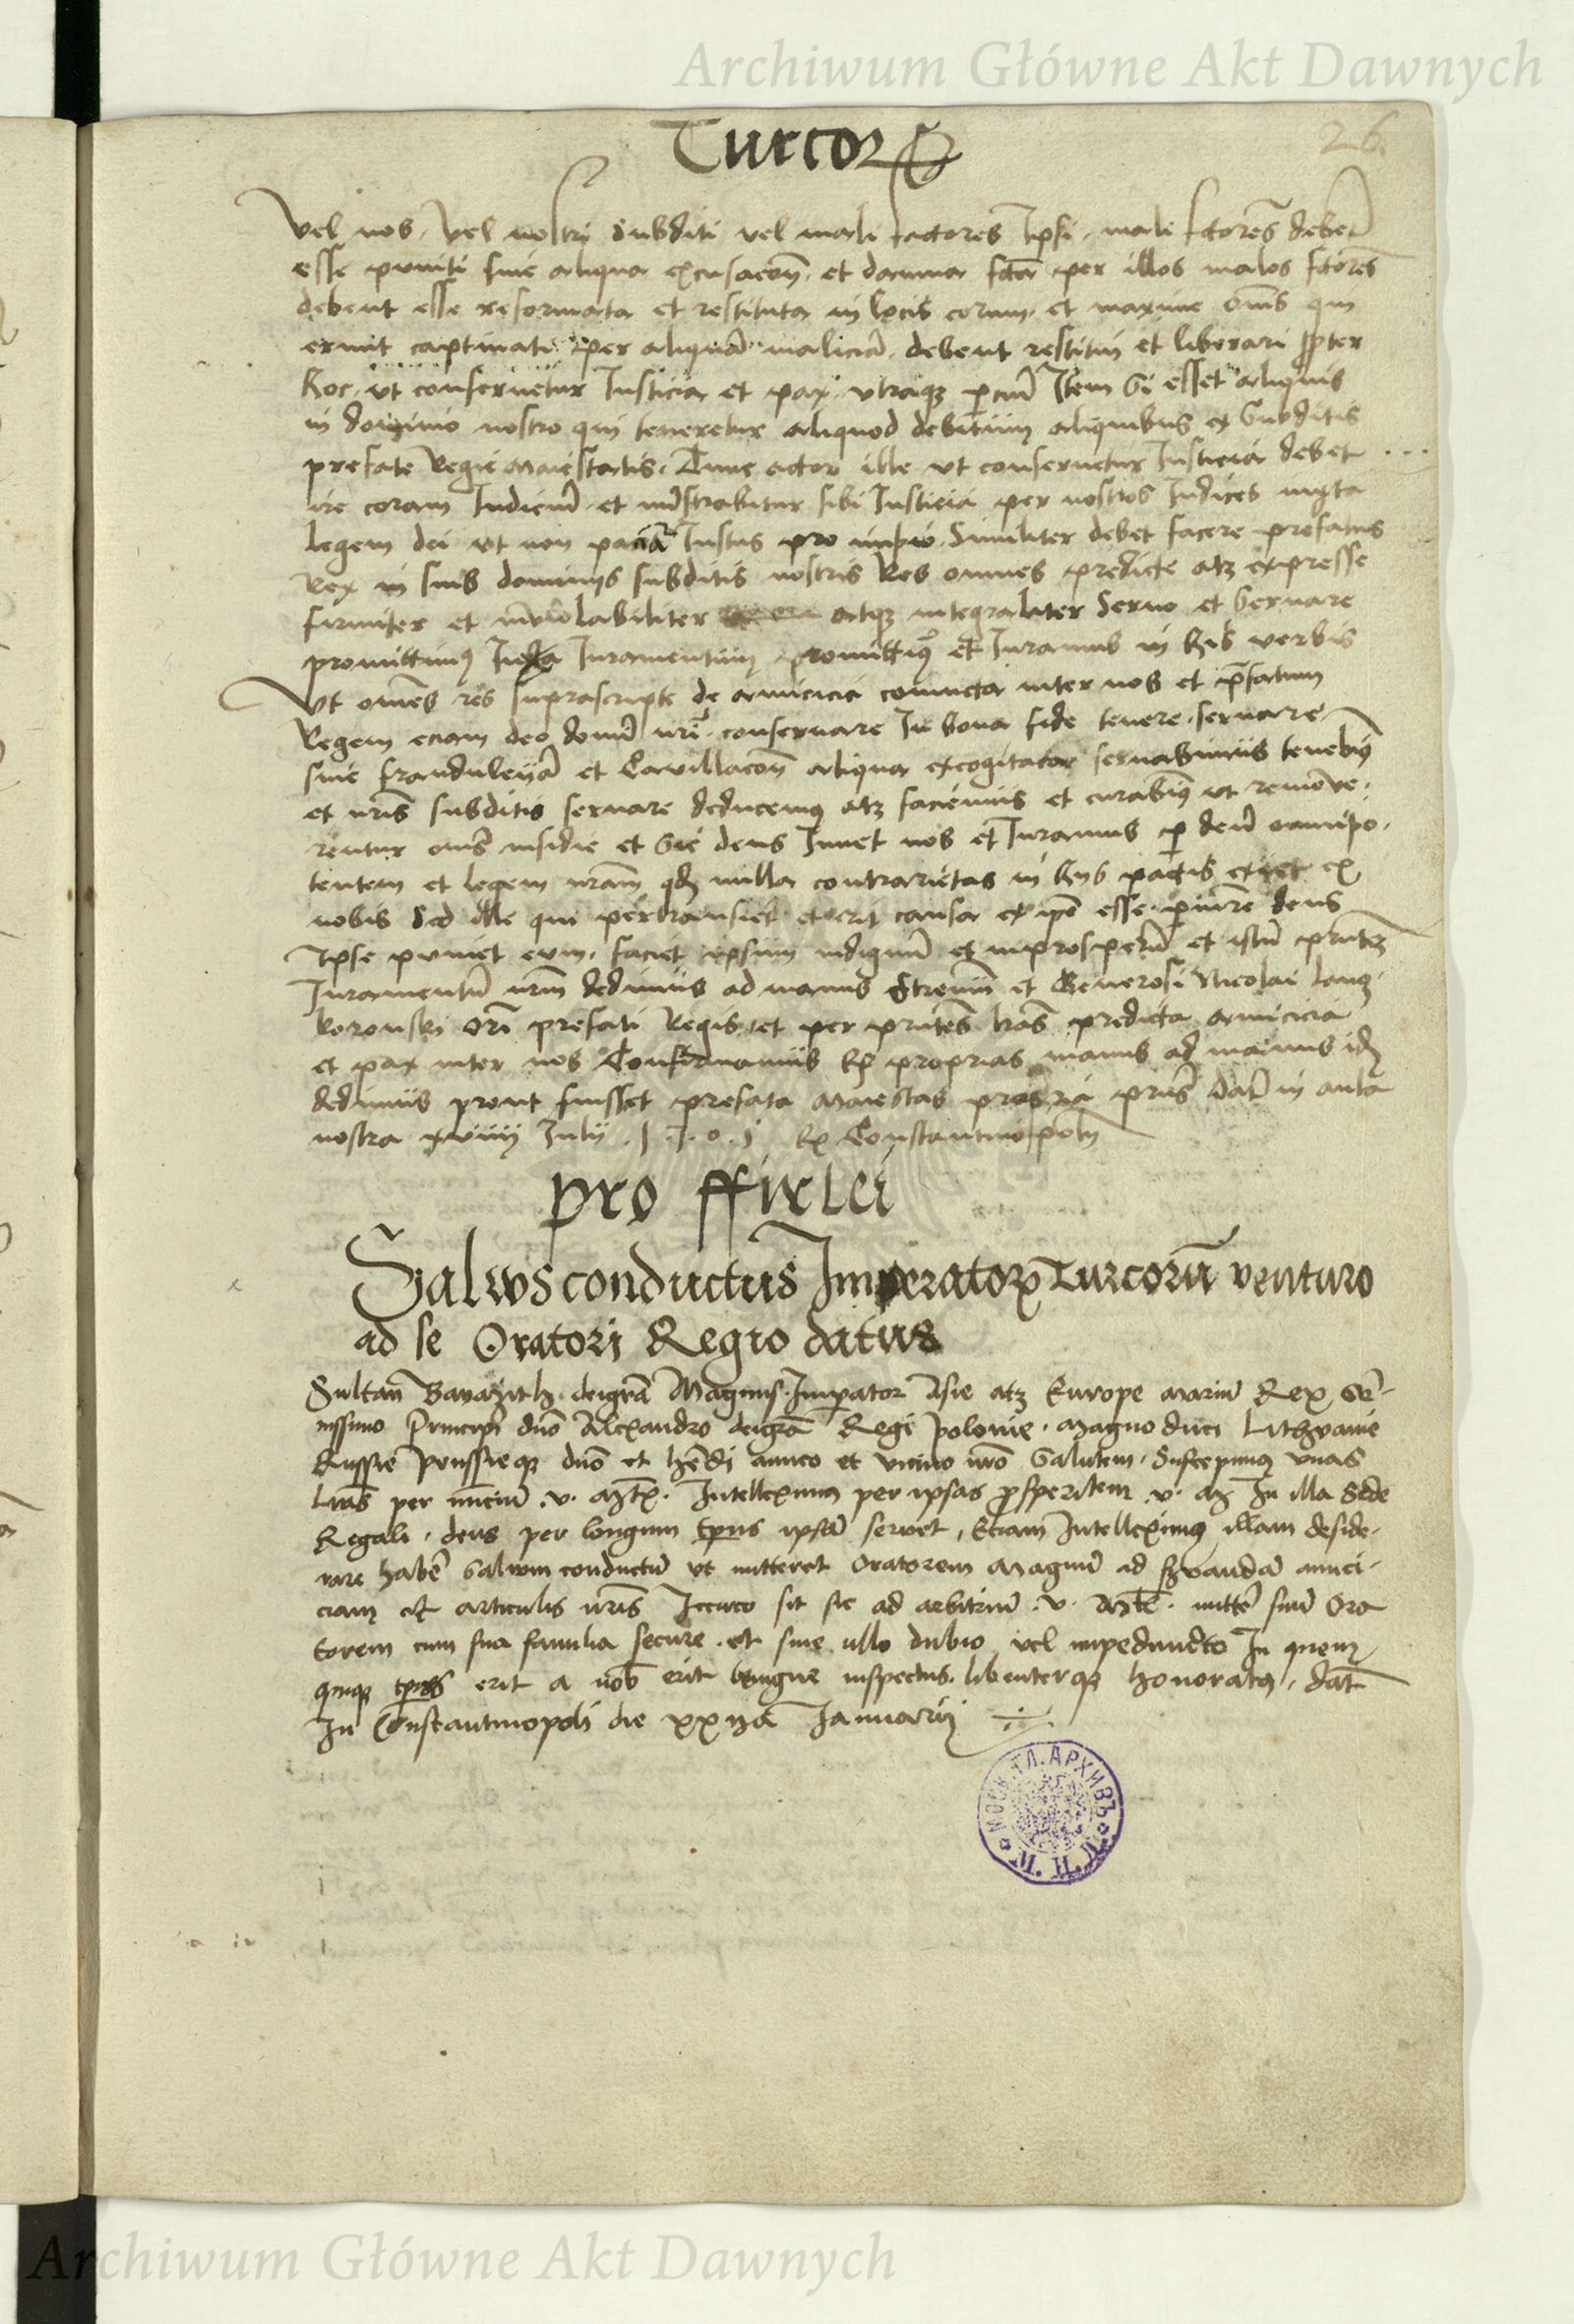 Archiwum Główne Akt Dawnych
26.
Turcor
Vel nos, Vel nostri Subditi vel mali factores Ipsi, mali fctores debet
esse puniti sine aliqua excusacon, et damna fcta per illos malos fctores
debent esse reformata et restituta in locis eorum, et maxime oms qui
erunt captivati per aliquã maliciã, debent restitui et liberari ppter
hoc, ut conservetur Iusticia et pax, utraque Item Si esset aliquis
in dominio nostro qui teneretur aliquod debitum aliquibus ex Subditis
prefate Regie Maiestatis, Tunc actor ille ut conservetur Iusticia debet
ire coram Iudicem et mistrabitur sibi Iusticia per nostros Iudices iuxta
legem dei ut non Iustus pro impio. Similiter debet facere prefatus
Rex in suis dominiis subditis nostris Res omnes predicte atque expresse
firmiter et inviolabiliter atque integraliter Servo et Servare
promittimus Iuramentum promittimus et Iuramus in his verbis
Ut omnes res suprascripte de amicicia coniuncta inter nos et prefatum
Regem eciam deo nri, conservare In bona fide tenere, servare
sine fraudulencia et Cavillacon aliqua excogitata servabimus tenebimus
et nris subditis servare deducemus atque faciemus et curabimus ut remove-
rentur oms insidie et Sic deus Iuvet nos et Iuramus per deum omnipo-
tentem et legem nram quod nulla contrarietas in hiis pactis ex
nobis Sed ille qui erit causa esse deus
Ipse puniet eum, faciet ipsum indignum et improsperum et istum
Iuramentum nrm dedimus ad manus Strenui et Generosi Nicolai Lanc-
koronski prefati Regis, et per pntes lras predicta amicicia
et pax inter nos Confirmamus Et proprias manus ad manus
dedimus prout fuisset prefata Maiestas pns Dat in aula
nostra xviiii Iulii Ex Constantinopoli
pro ffirlei
Salvus conductus Imperatoris Turcorũ venturo
ad se Oratori Regio datus
Sultan Bayazith deigrã Magnus Imperator Asie atque Europe Marium Rex Se-
nissimo Principi dno Alexandro deigrã Regi Polonie, Magno duci Lithvanie
Russie Prussieque dno et amico et vicino nro Salutem, Suscepimus vnas
Lras per nuncium v. Mtis. Intelleximus per ipsas prosperitatem v. M In illa Sede
Regali, deus per longum tempus ipsam servet, Eciam Intelleximus illam deside-
rare habere Salvum conductum ut mitteret Oratorem Magnum ad amici-
ciam articulis nris Iccirco sit sic ad arbitrium v. Mtis. mittere suum Ora
torem cum sua familia secure et sine ullo dubio vel impedimento In quem-
cumque tempus erit a nobis erit benigne inspectus, libenterque honoratus, dat
In Constantinopoli die Ianuarii
МОСК. ГЛ. АРХИВЪ
М. И. Д.
Archiwum Główne Akt Dawnych